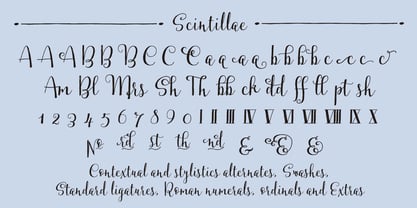 Scintillae
A A A B B B C C C a a a a b b b b c c c
Am Bl Mrs Sh Th bb ck dd ff ll pt sh
1 2 3 4 5 6 7 8 9 0 I II III IV V VI VII VIII IX X
No rd st th nd & & &
Contextual and stylistics alternates, Swashes,
Standard ligatures, Roman numerals, ordinals and Extras